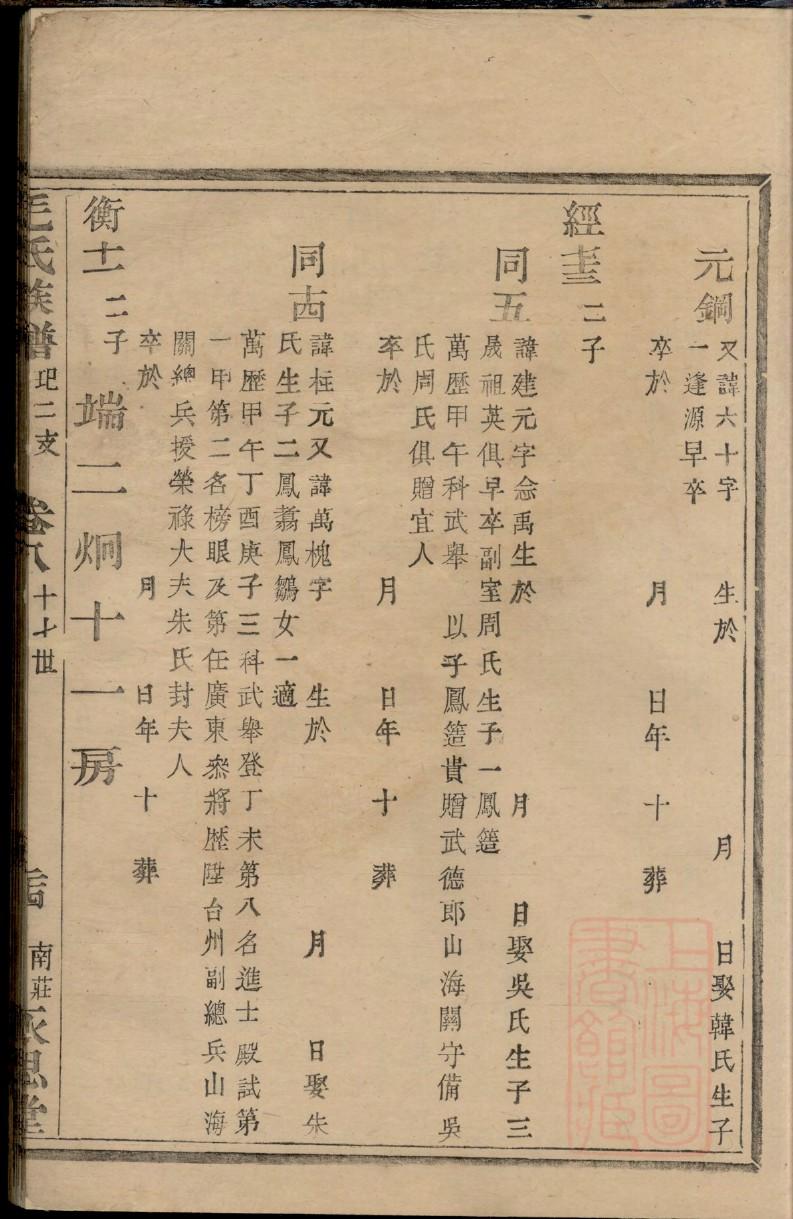 元鋼 又諱六十字 生於 月 日娶韓氏生子
一逢源早卒
卒於 月 日年 十 葬
經 二子
同五 諱建元字念禹生於 月 日娶吳氏生子三
晟祖英俱早卒副室周氏生子一鳳
萬歷甲午科武舉 以子鳳貴贈武德郎山海關守備吳
氏周氏俱贈宜人
卒於 月 日年 十 葬
同 諱柱元又諱萬槐字 生於 月 日娶朱
氏生子二鳳翥鳳鶵女一適
萬歷甲午丁酉庚子三科武舉登丁未第八名進士殿試第
一甲第二名榜眼及第任廣東叅將歷陞台州副總兵山海
關總兵授榮祿大夫朱氏封夫人
卒於 月 日年 十 葬
衡 二子
端二炯十一房
毛氏族譜 二支 卷八 十七世 南莊
上海圖書館藏